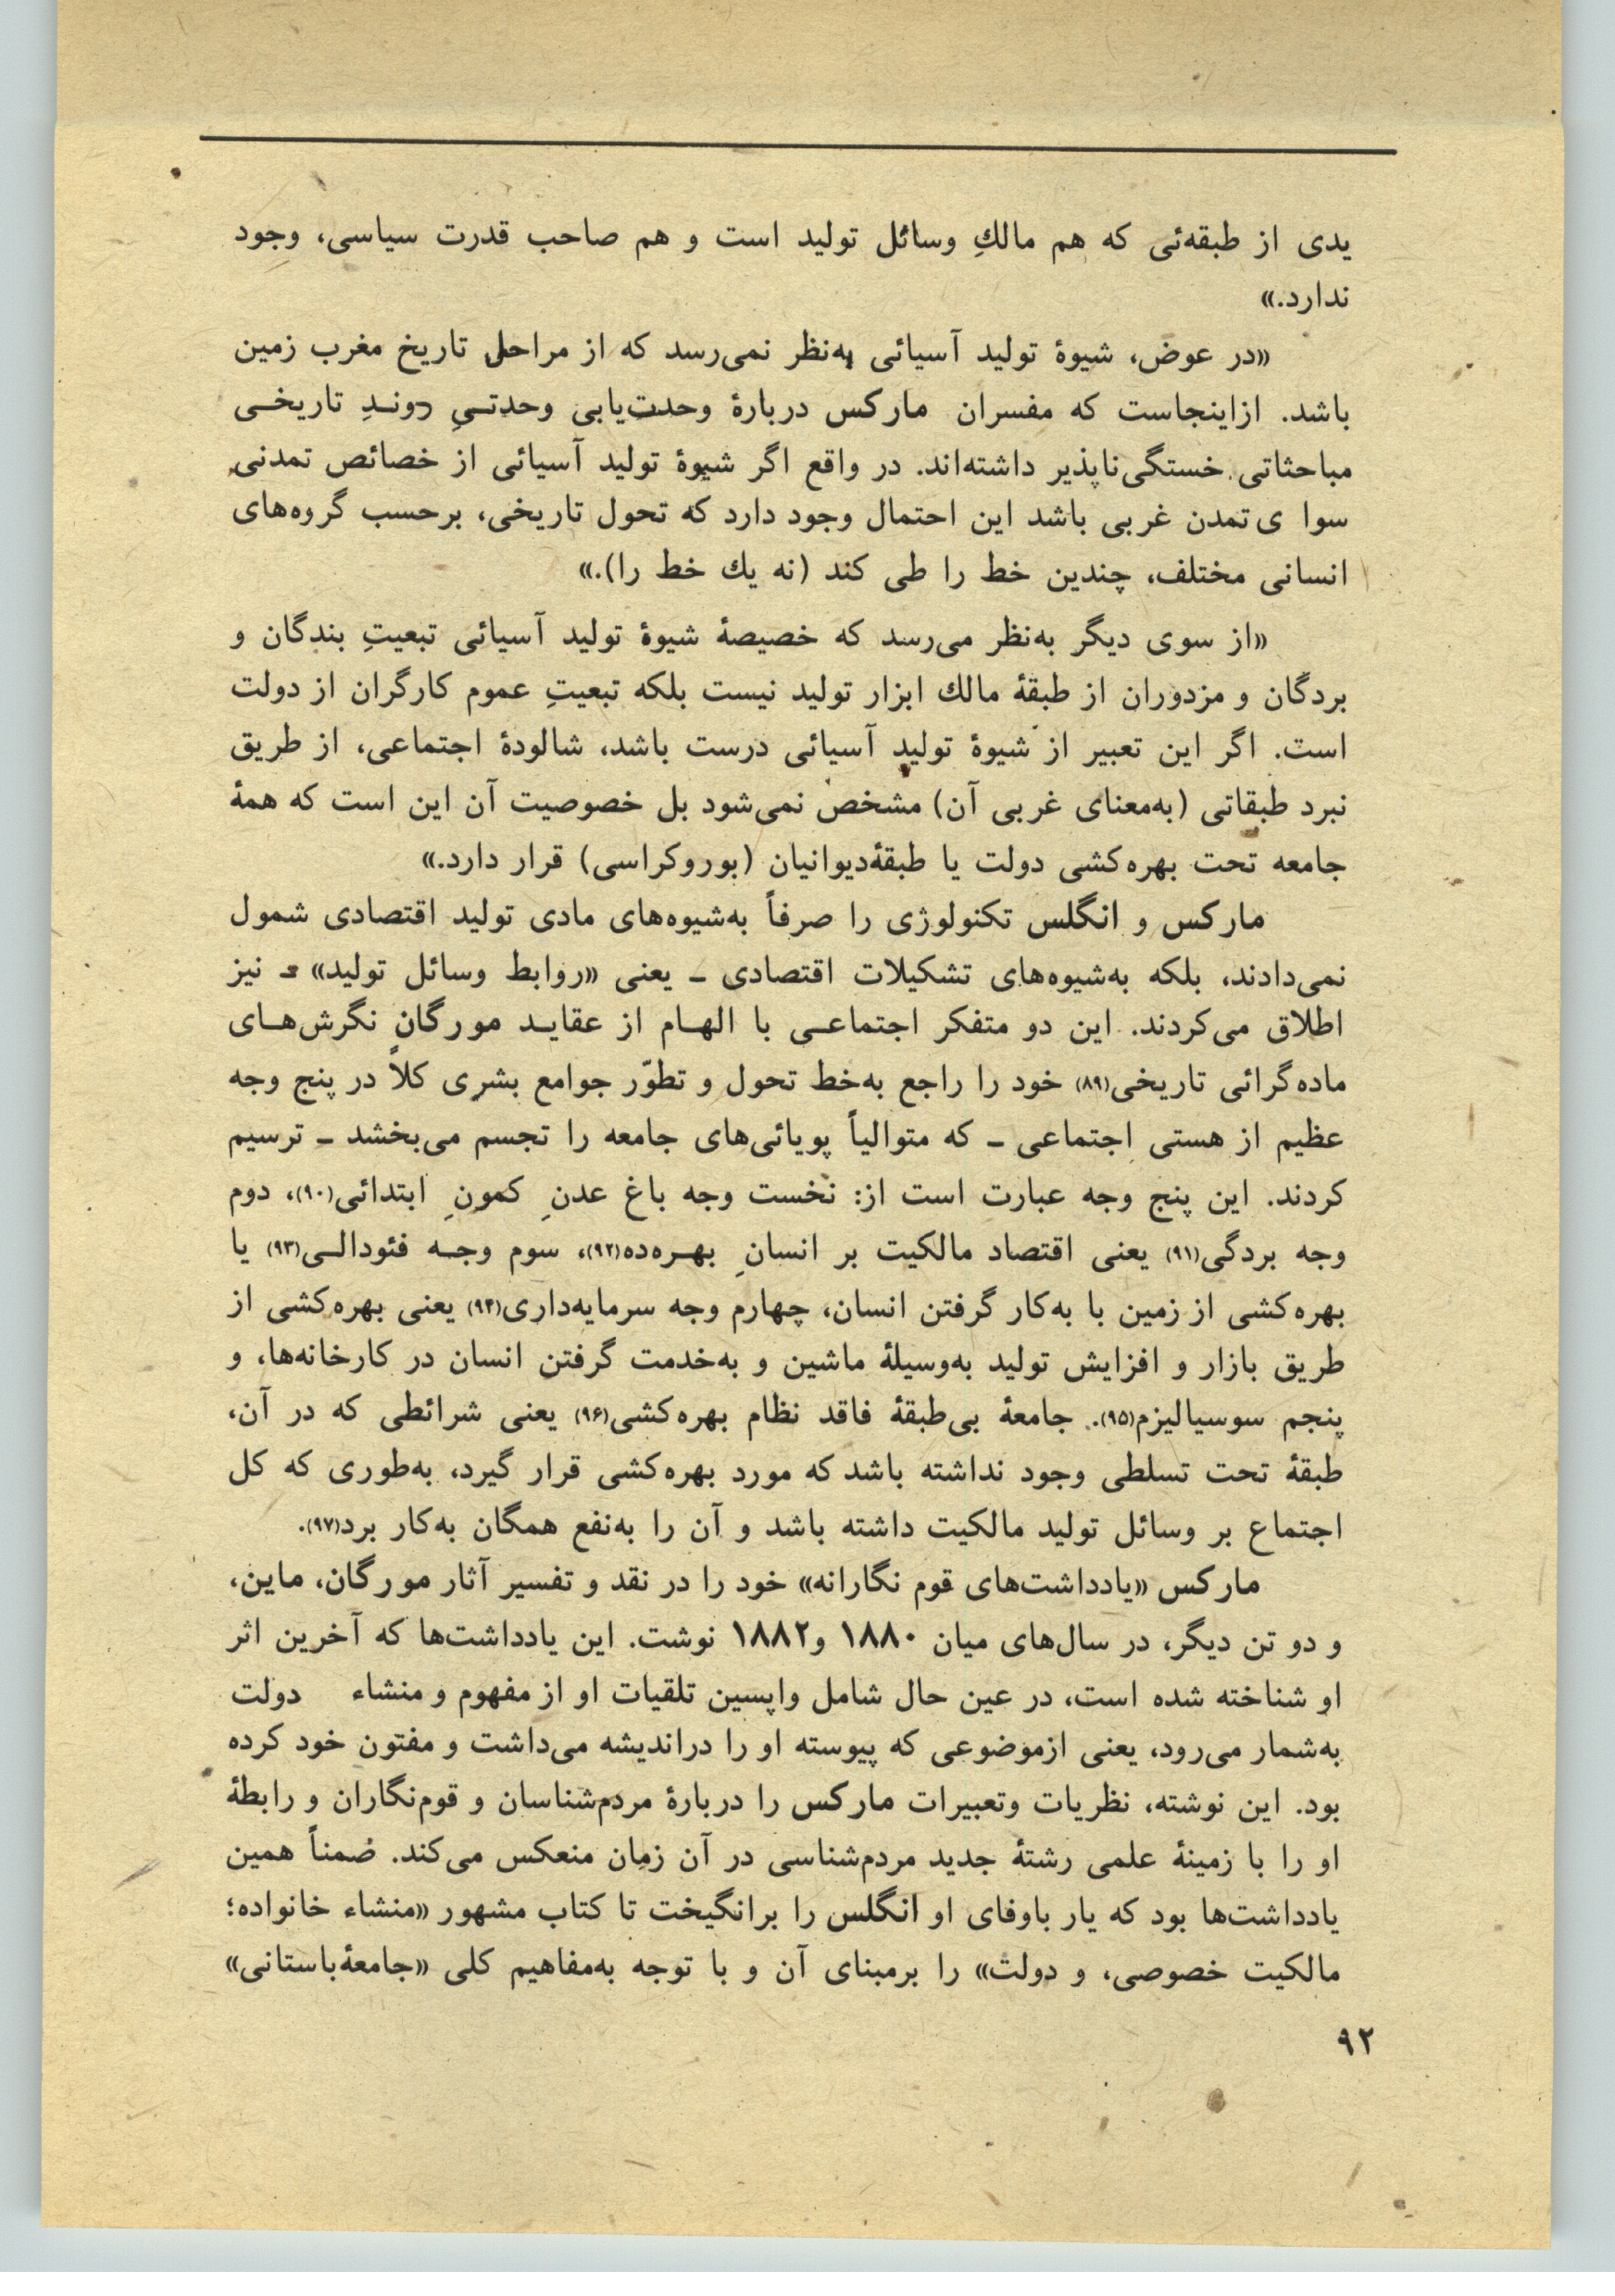 یدی از طبقه‌ئی که هم مالكِ وسائل تولید است و هم صاحب قدرت سیاسی، وجود
ندارد.»
«در عوض، شیوهٔ تولید آسیائی به‌نظر نمی‌رسد که از مراحل تاریخ مغرب زمین
باشد. ازاینجاست که مفسران مارکس دربارهٔ وحدت‌یابی وحدتـیِ رونـدِ تاریخـی
مباحثاتی خستگی‌ناپذیر داشته‌اند. در واقع اگر شیوهٔ تولید آسیائی از خصائص تمدنی
سوا ی تمدن غربی باشد این احتمال وجود دارد که تحول تاریخی، برحسب گروه‌های
انسانی مختلف، چندین خط را طی کند (نه یك خط را).»
«از سوی دیگر به‌نظر می‌رسد که خصیصهٔ شیوهٔ تولید آسیائی تبعیتِ بندگان و
بردگان و مزدوران از طبقهٔ مالك ابزار تولید نیست بلکه تبعیتِ عموم کارگران از دولت
است. اگر این تعبیر از شیوهٔ تولید آسیائی درست باشد، شالودهٔ اجتماعی، از طریق
نبرد طبقاتی (به‌معنای غربی آن) مشخص نمی‌شود بل خصوصیت آن این است که همهٔ
جامعه تحت بهره‌کشی دولت یا طبقهٔ‌دیوانیان (بوروکراسی) قرار دارد.»
مارکس و انگلس تکنولوژی را صرفاً به‌شیوه‌های مادی تولید اقتصادی شمول
نمی‌دادند، بلکه به‌شیوه‌های تشکیلات اقتصادی ـ یعنی «روابط وسائل تولید» ـ نیز
اطلاق می‌کردند. این دو متفکر اجتماعـی با الهـام از عقایـد مورگان نگرش‌هـای
ماده‌گرائی تاریخی(۸۹) خود را راجع به‌خط تحول و تطوّر جوامع بشری کلاً در پنج وجه
عظیم از هستی اجتماعی ـ که متوالیاً پویائی‌های جامعه را تجسم می‌بخشد ـ ترسیم
کردند. این پنج وجه عبارت است از: نخست وجه باغ عدنِ کمونِ ابتدائی(۹۰)، دوم
وجه بردگی(۹۱) یعنی اقتصاد مالکیت بر انسانِ بهـره‌ده(۹۲)، سوم وجـه فئودالـی(۹۳) یا
بهره‌کشی از زمین با به‌کار گرفتن انسان، چهارم وجه سرمایه‌داری(۹۴) یعنی بهره‌کشی از
طریق بازار و افزایش تولید به‌وسیلهٔ ماشین و به‌خدمت گرفتن انسان در کارخانه‌ها، و
پنجم سوسیالیزم(۹۵). جامعهٔ بی‌طبقهٔ فاقد نظام بهره‌کشی(۹۶) یعنی شرائطی که در آن،
طبقهٔ تحت تسلطی وجود نداشته باشد که مورد بهره‌کشی قرار گیرد، به‌طوری که کل
اجتماع بر وسائل تولید مالکیت داشته باشد و آن را به‌نفع همگان به‌کار برد(۹۷).
مارکس «یادداشت‌های قوم نگارانه» خود را در نقد و تفسیر آثار مورگان، ماین،
و دو تن دیگر، در سال‌های میان ۱۸۸۰ و۱۸۸۲ نوشت. این یادداشت‌ها که آخرین اثر
او شناخته شده است، در عین حال شامل واپسین تلقیات او از مفهوم و منشاء دولت
به‌شمار می‌رود، یعنی ازموضوعی که پیوسته او را دراندیشه می‌داشت و مفتون خود کرده
بود. این نوشته، نظریات وتعبیرات مارکس را دربارهٔ مردم‌شناسان و قوم‌نگاران و رابطهٔ
او را با زمینهٔ علمی رشتهٔ جدید مردم‌شناسی در آن زمان منعکس می‌کند. ضمناً همین
یادداشت‌ها بود که یار باوفای او انگلس را برانگیخت تا کتاب مشهور «منشاء خانواده؛
مالکیت خصوصی، و دولت» را برمبنای آن و با توجه به‌مفاهیم کلی «جامعهٔ‌باستانی»
۹۲